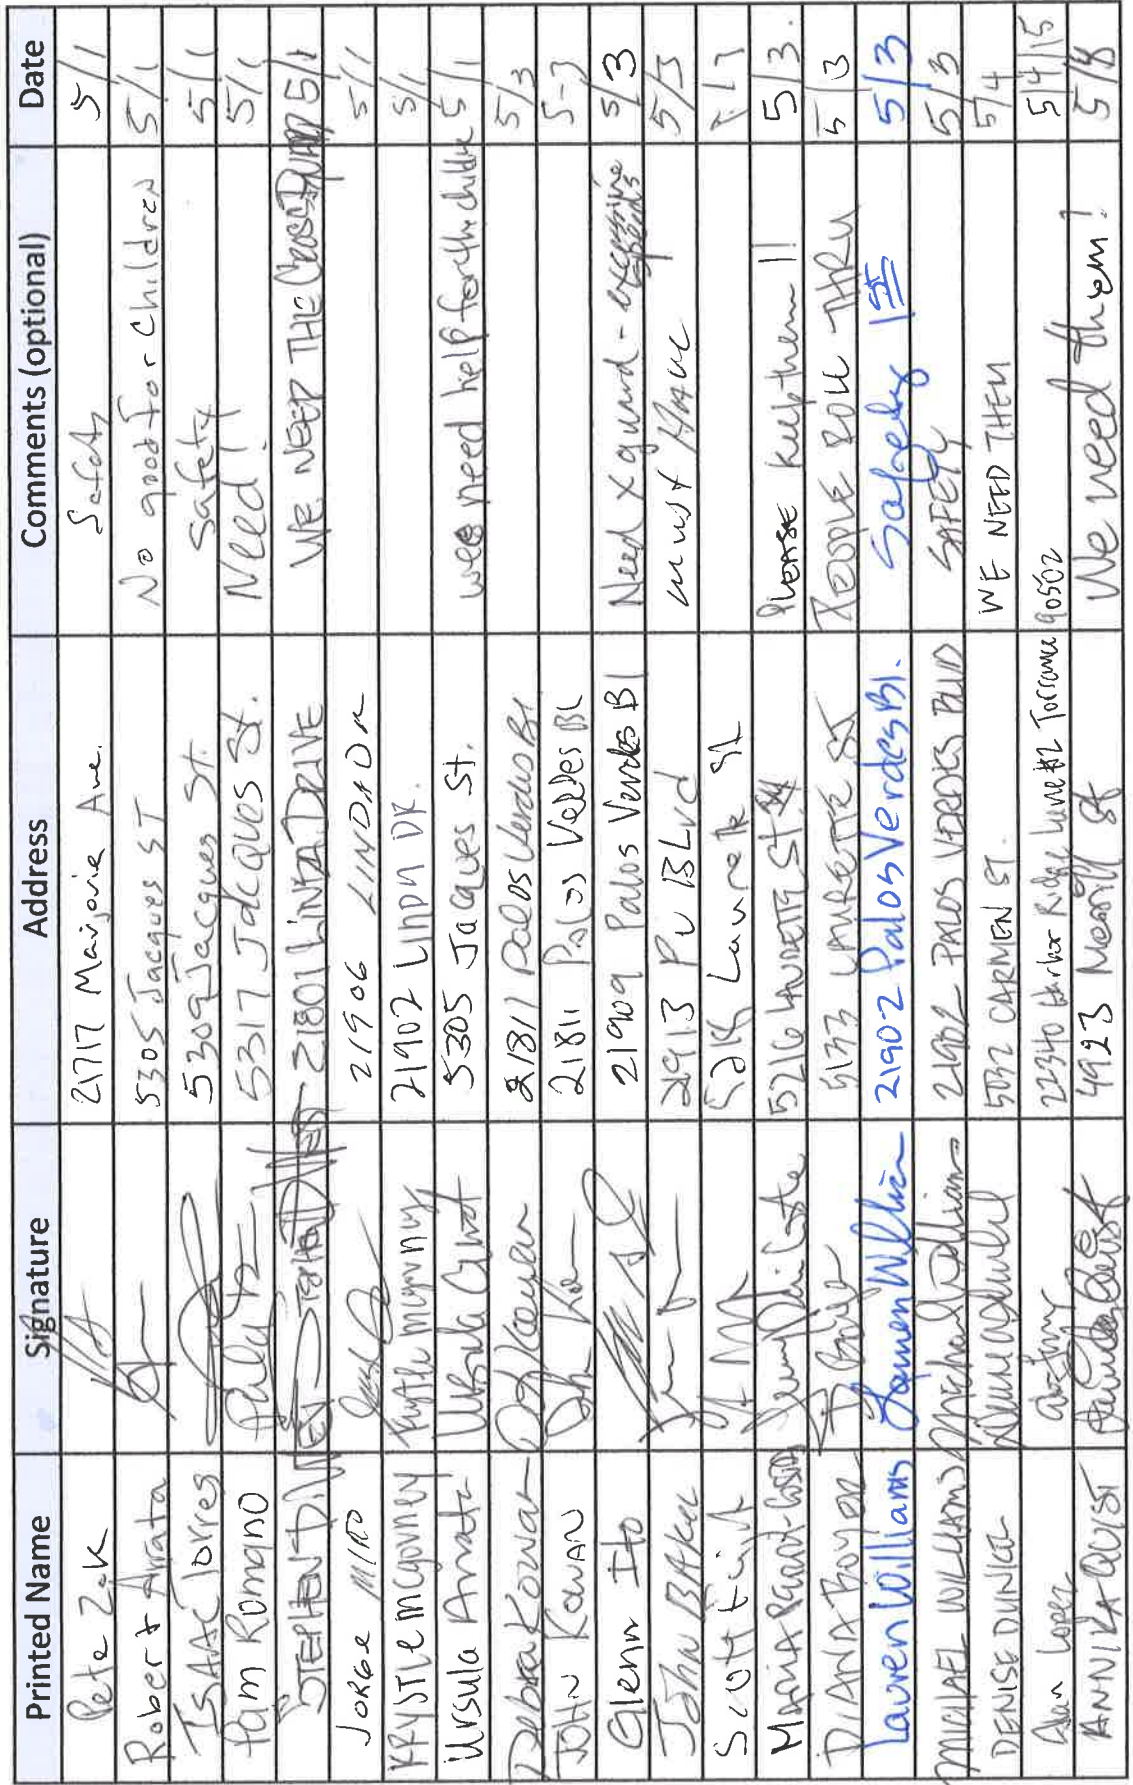 Printed Name Signature Address Comments (optional) Date
Pete Zak 21717 Marjorie Ave. Safety 5/1
Robert Arrata 5305 Jacques ST No good for Children 5/1
ISAAC Torres 5309 Jacques St. Safety 5/1
Pam Romano 5317 Jacques St. Need! 5/1
STEPHEN 21801 LINDA DRIVE WE NEED THE 5/1
JORGE MIRO 21906 LINDA DR 5/1
KRYSTLE MCGOVNEY Krystle Mcgovney 21902 LINDA DR. 5/1
Ursula Arrata 5305 Jacques St. we need help for the childre 5/1
Debra Kowan 21811 Palos Verdes Bl 5/3
JOHN KOWAN 21811 Palos Verdes BL 5-3
Glenn Ito 21909 Palos Verdes Bl Need x guard - excessive speeds 5/3
John BAKer 21913 PV BLvd must HAVE 5/3
Scott Laurette St
MARIA 5216 LAURETTE ST Please keep them!! 5/3.
DIANA BOYER 5133 LAURETTE ST PEOPLE ROLL THRU 5/3
Lauren Williams Lauren Williams 21902 Palos Verdes Bl. Safety 1st 5/3
MICHAEL WILLIAMS Michael Williams 21902 PALOS VERDES BLVD SAFETY 5/3
DENISE DUNKEL 5032 CARMEN ST. WE NEED THEM 5/4
Lopez 22340 Harbor Ridge Lane #2 Torrance 90502 5/4/15
ANNIKA QUIST 4923 Merrill St We need them! 5/8